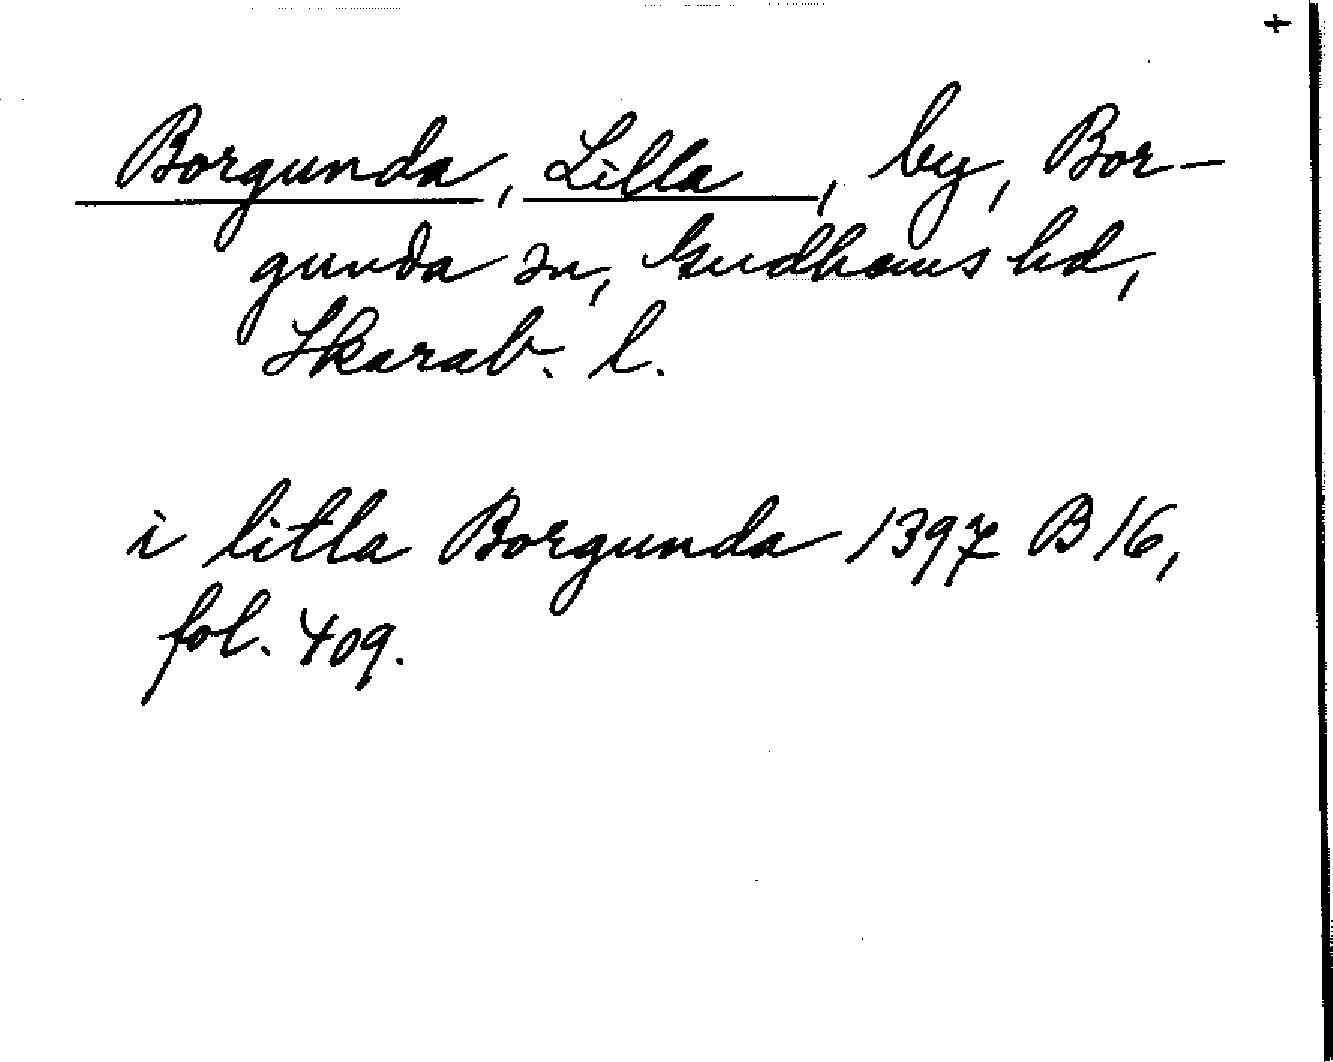 +
Borgunda, Lilla, by, Bor-
gunda sn, Gudhems hd,
Skarab. l.
i litla Borgunda 1397 B 16,
fol. 409.